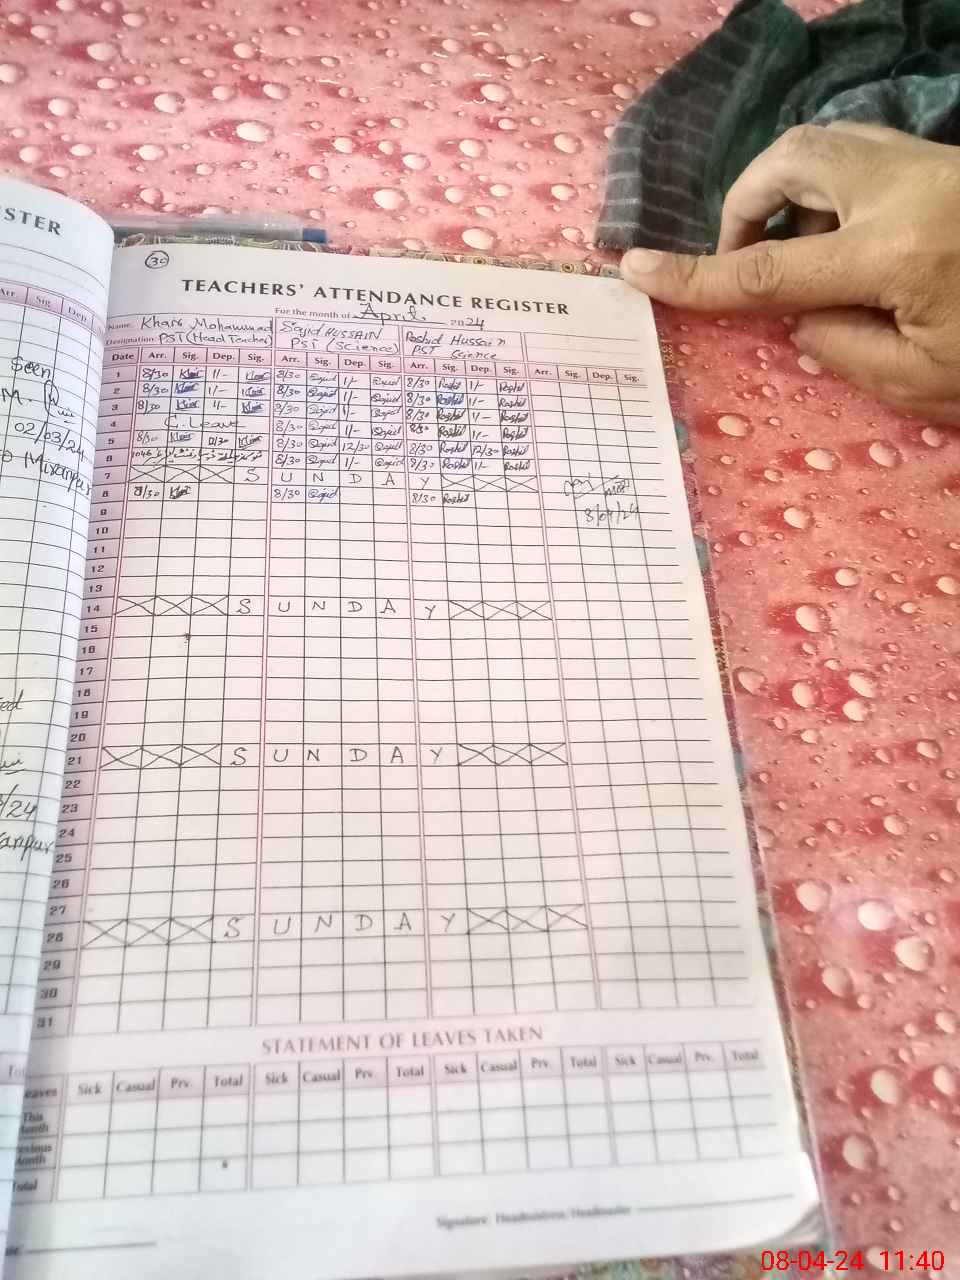 STER
Arr. Sig. Dep.
Seen
M.
02/03/24
Mixanpur
ed
/24
anpur
30
TEACHERS' ATTENDANCE REGISTER
For the month of April 2024
Name: Khair Mohammad Sajid HUSSAIN Rashid Hussain
Designation PST (Head Teacher) PST (Science) PST Science
Date Arr. Sig. Dep. Sig. Arr. Sig. Dep. Sig. Arr. Sig. Dep. Sig. Arr. Sig. Dep. Sig.
1 8/30 Khair 1/- Khair 8/30 Sajid 1/- Sajid 8/30 Rashid 1/- Rashid
2 8/30 Khair 1/- Khair 8/30 Sajid 1/- Sajid 8/30 Rashid 1/- Rashid
3 8/30 Khair 1/- Khair 8/30 Sajid 1/- Sajid 8/30 Rashid 1/- Rashid
4 C. Leave 8/30 Sajid 1/- Sajid 8/30 Rashid 1/- Rashid
5 8/30 Khair 12/30 Khair 8/30 Sajid 12/30 Sajid 8/30 Rashid 12/30 Rashid
6 8/30 Sajid 1/- Sajid 8/30 Rashid 1/- Rashid
7 S U N D A Y
8 8/30 Khair 8/30 Sajid 8/30 Rashid
8/04/24
9
10
11
12
13
14 S U N D A Y
15
16
17
18
19
20
21 S U N D A Y
22
23
24
25
26
27
28 S U N D A Y
29
30
31
STATEMENT OF LEAVES TAKEN
eaves Sick Casual Prv. Total Sick Casual Prv. Total Sick Casual Prv. Total Sick Casual Prv. Total
This Month
evious Month
Total
Signature: Headmistress/Headmaster
08-04-24 11:40